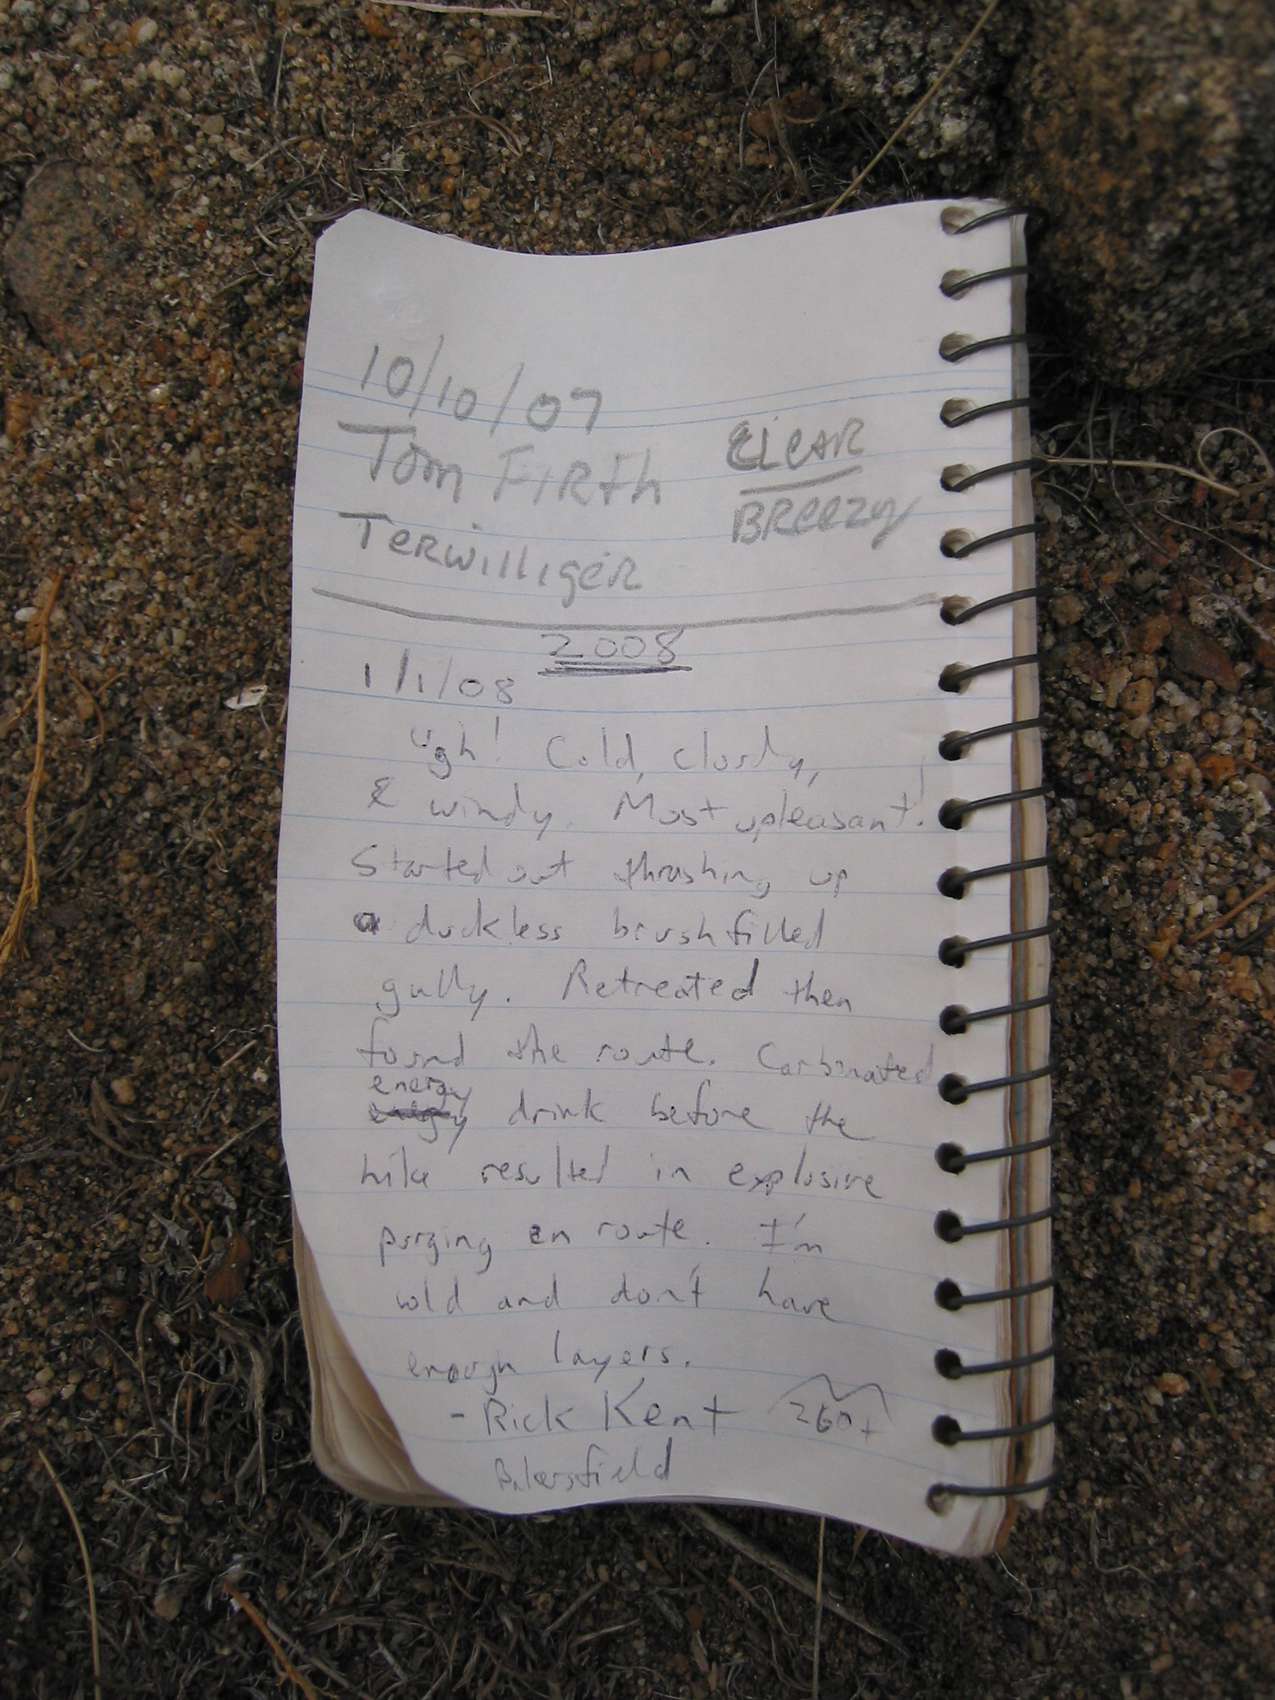 10/10/07
Tom Firth
Clear
Breezy
Terwilliger
2008
1/1/08
Ugh! Cold, cloudy,
& windy. Most upleasant!
Started out thrashing up
a duckless brushfilled
gully. Retreated then
found the route. Carbonated
energy drink before the
hike resulted in explosive
purging en route. I'm
cold and don't have
enough layers.
- Rick Kent 260+
Bakersfield